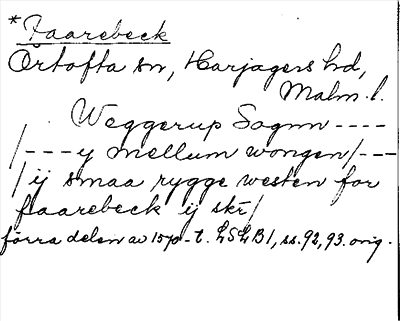 *Faarebeck
Örtofta sn, Harjagers hd,
Malm. l.
Weggerup Sognn ----
/---y mellum wongen/---
/ij smaa rygge westen for
faarebeck ij skr/
förra delen av 15p-t. LSLB1, ss. 92, 93. orig.